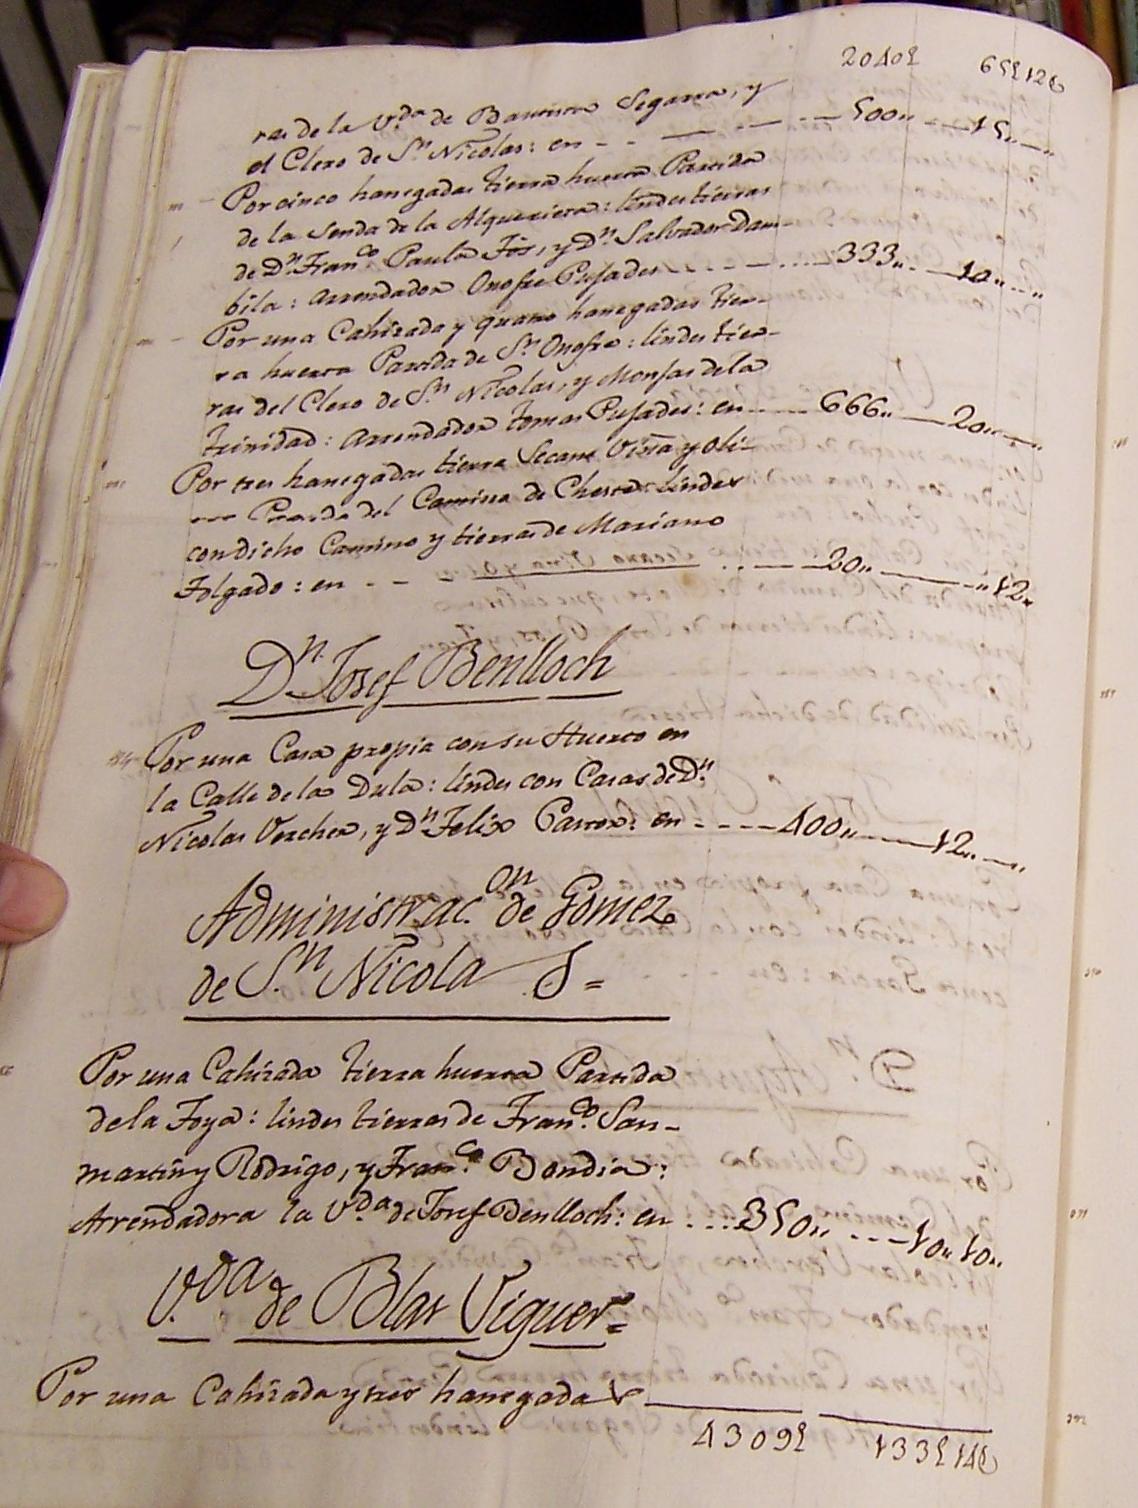 2040£ 65£12§
ras de la V.da de Bautista Segarra, y
el Clero de S.n Nicolas: en - - — - — - — 500,, — 15,,—,,
Por cinco hanegadas tierra huerta Partida
de la Senda de la Alqueriera: lindes tierras
de D.n Fran.co Paula Fos, y D.n Salvador Dam-
bila: Arrendador Onofre Pusades - - - - - - 333,, - 10,,—,,
Por una Cahizada y quatro hanegadas tier-
ra huerta Partida de S.n Onofre: lindes tier-
ras del Clero de S.n Nicolas, y Monjas de la
trinidad: Arrendador tomas Pusades: en — 666,, — 20,,—,,
Por tres hanegadas tierra Secano Viña y oli-
Partida del Camino de Cheste: lindes
con dicho Camino y tierras de Mariano
Folgado: en - - — — - - 20,, — ,,12,,
D.n Josef Benlloch
Por una Casa propia con su Huerto en
la Calle de la Dula: lindes con Casas de D.n
Nicolas Vercher, y D.n Felix Pastor: en - - - 400,, — 12,,—,,
Administrac.on de Gomez
de S.n Nicolas =
Por una Cahizada tierra huerta Partida
de la Foya: lindes tierras de Fran.co San-
martin y Rodrigo, y Fran.co Bondia:
Arrendadora la V.da de Josef Benlloch: en - - - 350,, - - - 10,,10,,
V.da de Blas Viguer =
Por una Cahizada y tres hanegadas
4309£ 133£14§